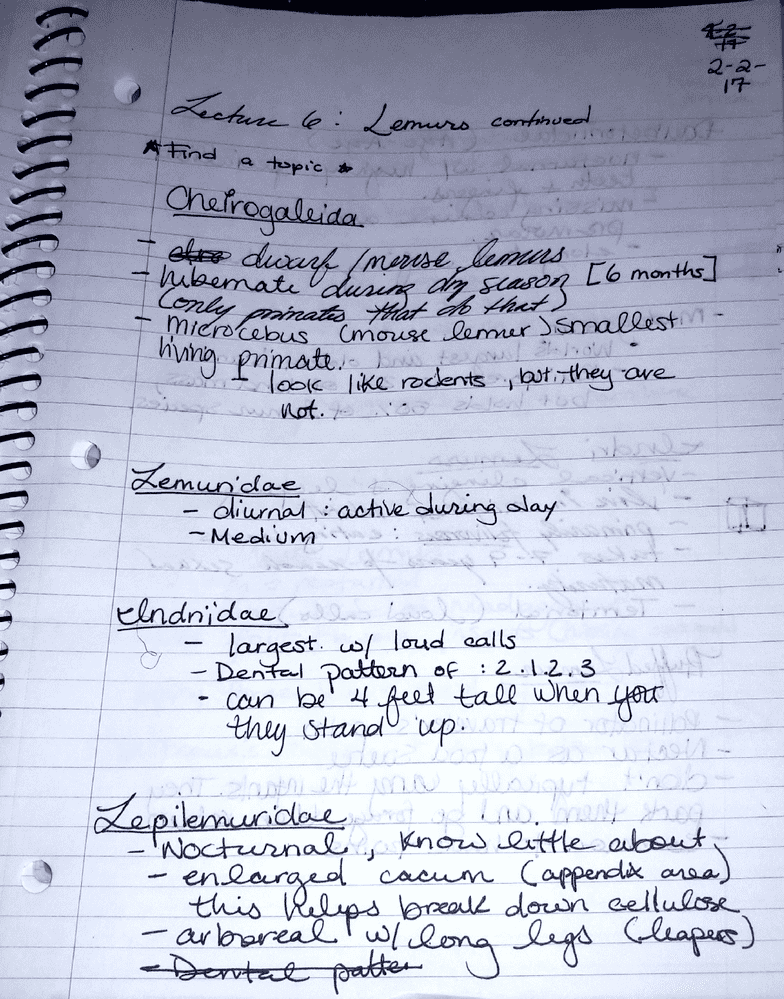 2-2-
17
Lecture 6: Lemurs continued
★Find a topic★
Cheirogaleida
- dwarf/mouse lemurs
- hibernate during dry season [6 months]
(only primates that do that)
- microcebus (mouse lemur) smallest
living primate.
- look like rodents, but they are
not.
Lemuridae
- diurnal: active during day
- Medium
Indriidae
- largest w/ loud calls
- Dental pattern of: 2.1.2.3
- can be 4 feet tall when you
they stand up.
Lepilemuridae
- Nocturnal, know little about
- enlarged cacum (appendix area)
this helps break down cellulose
- arboreal w/ long legs (leapers)
- Dental patter